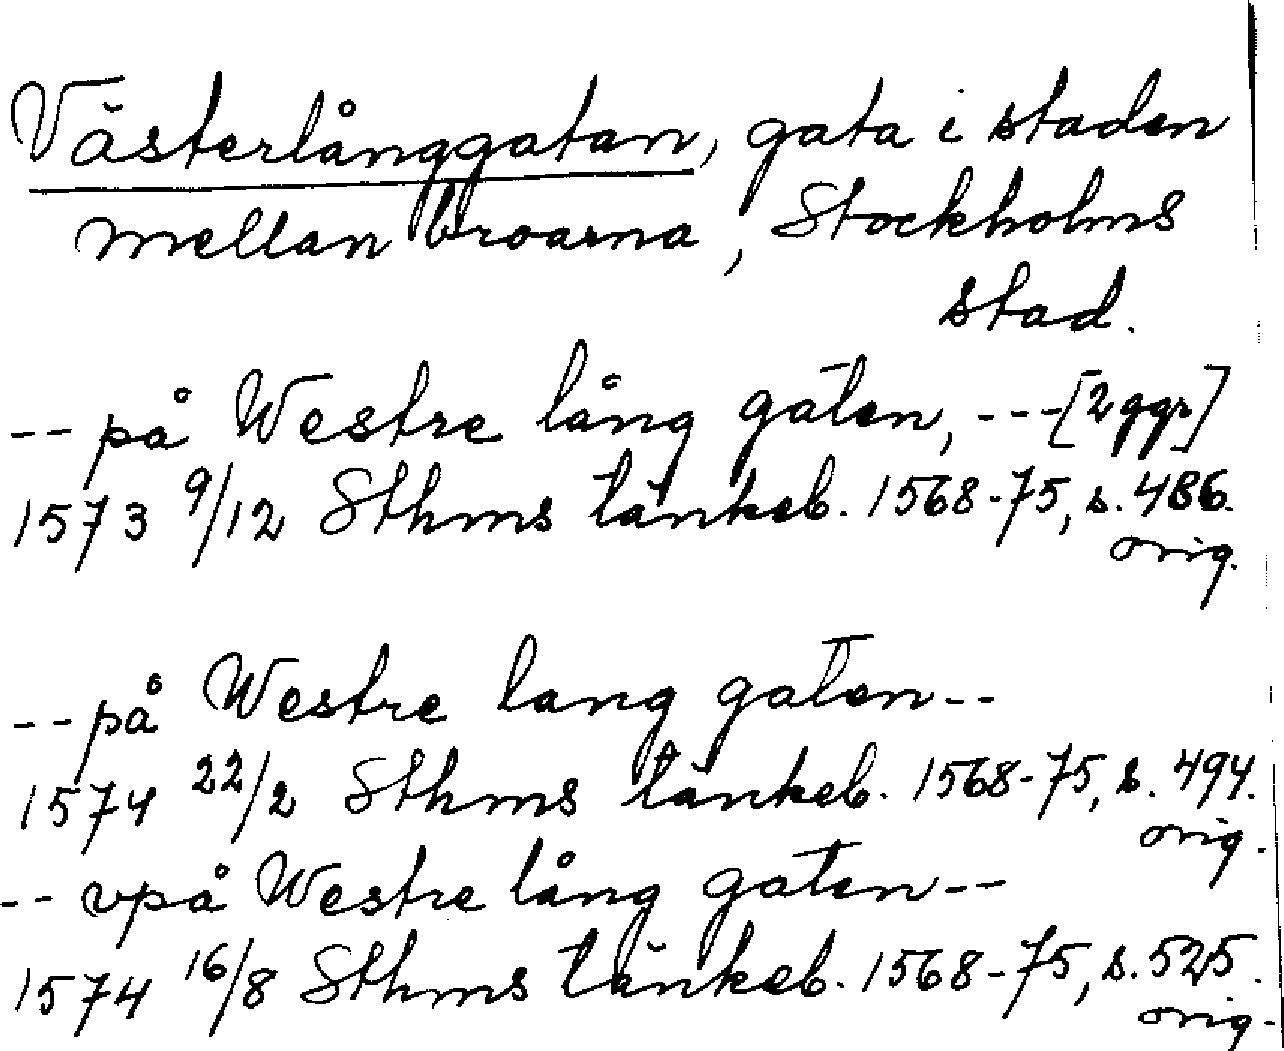 Västerlånggatan, gata i staden
mellan broarna, Stockholms
stad.
-- på Westre lång gaten, --- [2 ggr]
1573 9/12 Sthms tänkeb. 1568-75, s. 486.
orig.
-- på Westre lang gaten --
1574 22/2 Sthms tänkeb. 1568-75, s. 494.
orig.
-- vpå Westre lång gaten --
1574 16/8 Sthms tänkeb. 1568-75, s. 525.
orig.